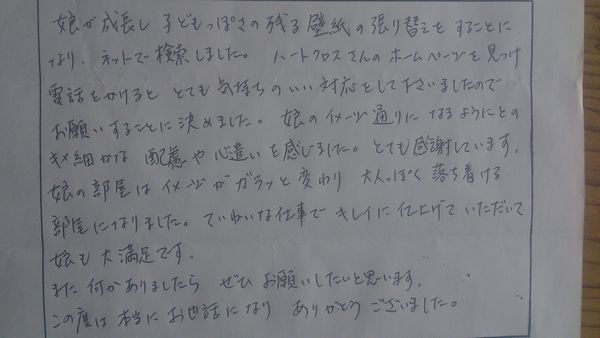 娘が成長し 子どもっぽさの残る 壁紙の張り替えをすることに
なり、ネットで検索しました。 ハートクロスさんのホームページを見つけ
電話をかけると とても気持ちのいい対応をして下さいましたので
お願いすることに決めました。 娘のイメージ通りになるようにとの
キメ細かな 配慮や心遣いを感じました。とても感謝しています。
娘の部屋はイメージがガラッと変わり 大人っぽく落ち着ける
部屋になりました。ていねいな仕事で キレイに仕上げていただいて
娘も大満足です。
また何かありましたら ぜひお願いしたいと思います。
この度は本当にお世話になり ありがとうございました。